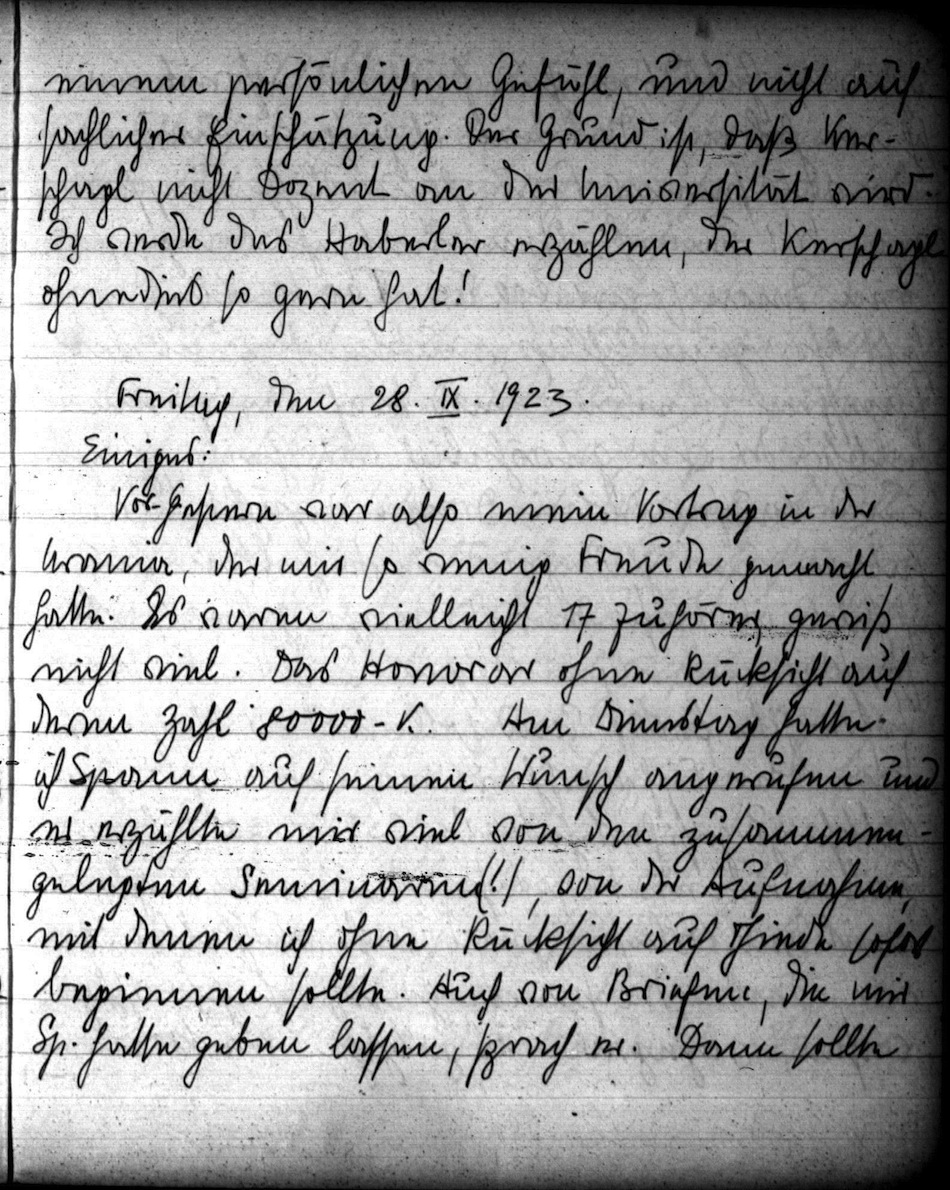 einem persönlichen Gefühl, und nicht auf
sachlicher Einschätzung. Der Grund ist, daß Ker-
schagl nicht Dozent an der Universität wird.
Ich werde das Haberler erzählen, der Kerschagl
ohnedies so gern hat!
Freitag, den 28. IX. 1923.
Einiges:
Vor-Gestern war also mein Vortrag in der
Urania, der mir so wenig Freude gemacht
hatte. Es waren vielleicht 17 Zuhörer, gewiß
nicht viel. Das Honorar ohne Rücksicht auf
deren Zahl 80000-K. Am Dienstag hatte
ich Spann auf seinen Wunsch angerufen und
er erzählte mir viel von den zusammen-
gelegten Seminarien(!), von der Aufnahme,
mit denen ich ohne Rücksicht auf sofort
beginnen sollte. Auch von Briefen, die mir
Sp. hatte geben lassen, sprach er. Dann sollte